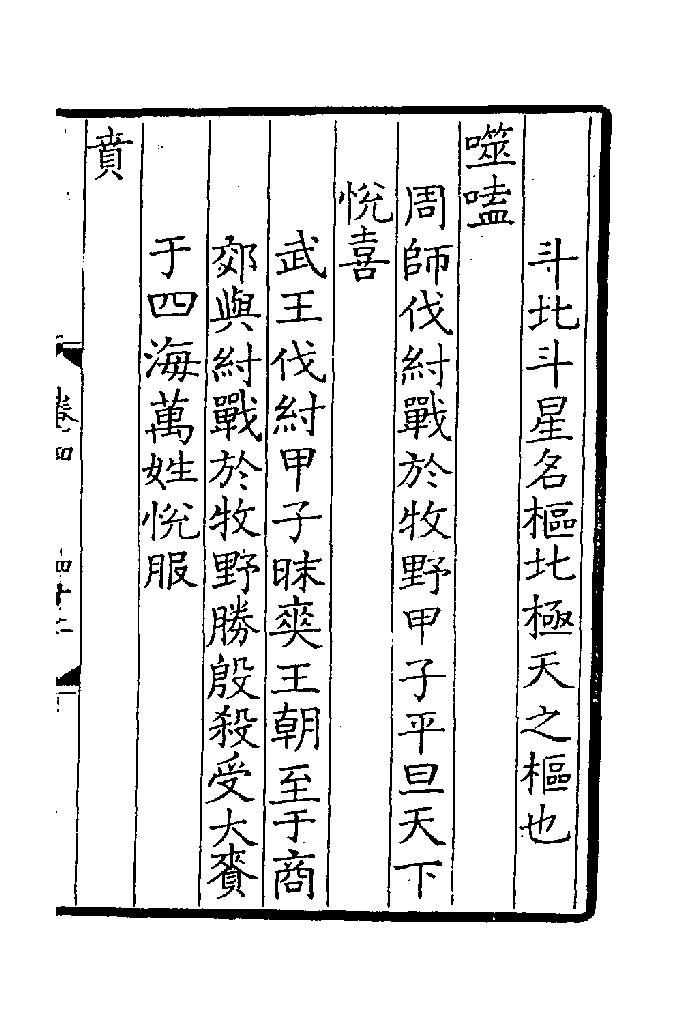 斗北斗星名樞北極天之樞也
噬嗑
周師伐紂戰於牧野甲子平旦天下
悅喜
武王伐紂甲子昧爽王朝至于商
郊與紂戰於牧野勝殷殺受大賚
于四海萬姓悅服
賁
卷四
四十二